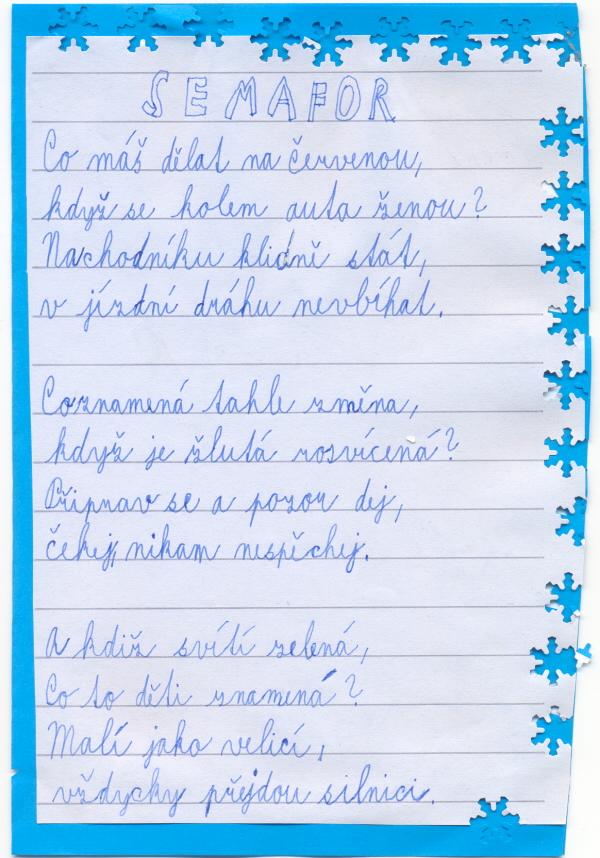 SEMAFOR
Co máš dělat na červenou,
když se kolem auta ženou?
Na chodníku klidně stát,
v jízdní dráhu nevbíhat.
Coznamená tahle změna,
když je žlutá rosvícená?
Připrav se a pozor dej,
čekej, nikam nespěchej.
A kdiž svítí zelená,
Co to děti znamená?
Malí jako velicí,
vždycky přejdou silnici.